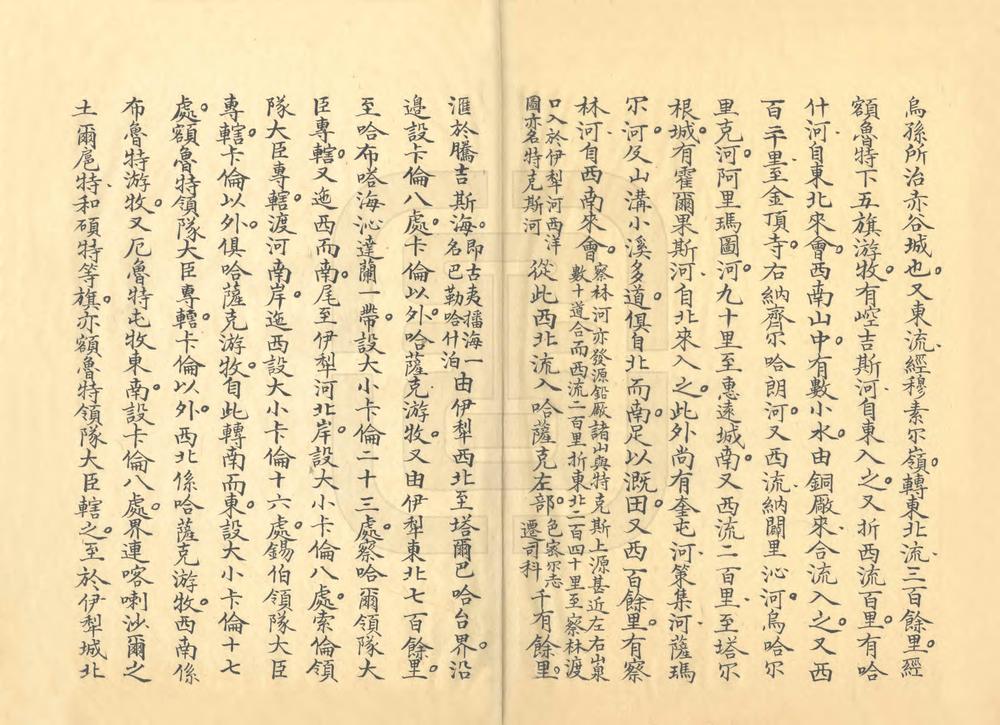 烏孫所治赤谷城也。又東流、經穆素尔嶺。轉東北流、三百餘里。經
額魯特下五旗游牧。有崆吉斯河、自東入之。又折西流百里。有哈
什河、自東北來會。西南山中有數小水。由銅廠來合流入之。又西
百平里、至金頂寺。右納齊尔哈朗河。又西流、納闢里沁河。烏哈尔
里克河。阿里瑪圖河。九十里至惠遠城南。又西流二百里、至塔尔
根城。有霍爾果斯河、自北來入之。此外尚有奎屯河、策集河、薩瑪
尔河、及山溝小溪多道。俱自北而南。足以溉田。又西百餘里。有察
林河、自西南來會。
察林河亦發源鉛廠諸山與特克斯上源甚近左右崗泉
數十道合而西流二百里折東北二百四十里至察林渡
口入於伊犁河西洋
圖亦名特克斯河
從此西北流、入哈薩克左部。
色察尔志
遷司科
千有餘里。
滙於騰吉斯海。
即古夷播海一
名巴勒哈什泊
由伊犁西北至塔爾巴哈台界。沿
邊設卡倫八處。卡倫以外。哈薩克游牧。又由伊犁東北七百餘里
至哈布塔海沁達蘭一帶。設大小卡倫二十三處。察哈爾領隊大
臣專轄。又迤西而南。尾至伊犁河北岸。設大小卡倫八處。索倫領
隊大臣專轄。渡河南岸。迤西設大小卡倫十六處。錫伯領隊大臣
專轄。卡倫以外。俱哈薩克游牧。自此轉南而東。設大小卡倫十七
處。額魯特領隊大臣專轄。卡倫以外。西北係哈薩克游牧。西南係
布魯特游牧。又厄魯特屯牧東南。設卡倫八處。界連喀喇沙爾之
土爾扈特、和碩特等旗。亦額魯特領隊大臣轄之。至於伊犁城北